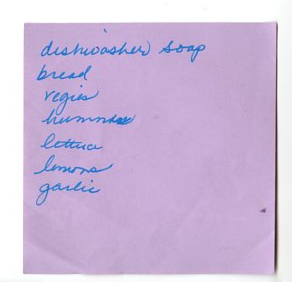 dishwasher soap
bread
vegies
hummus
lettuce
lemons
garlic